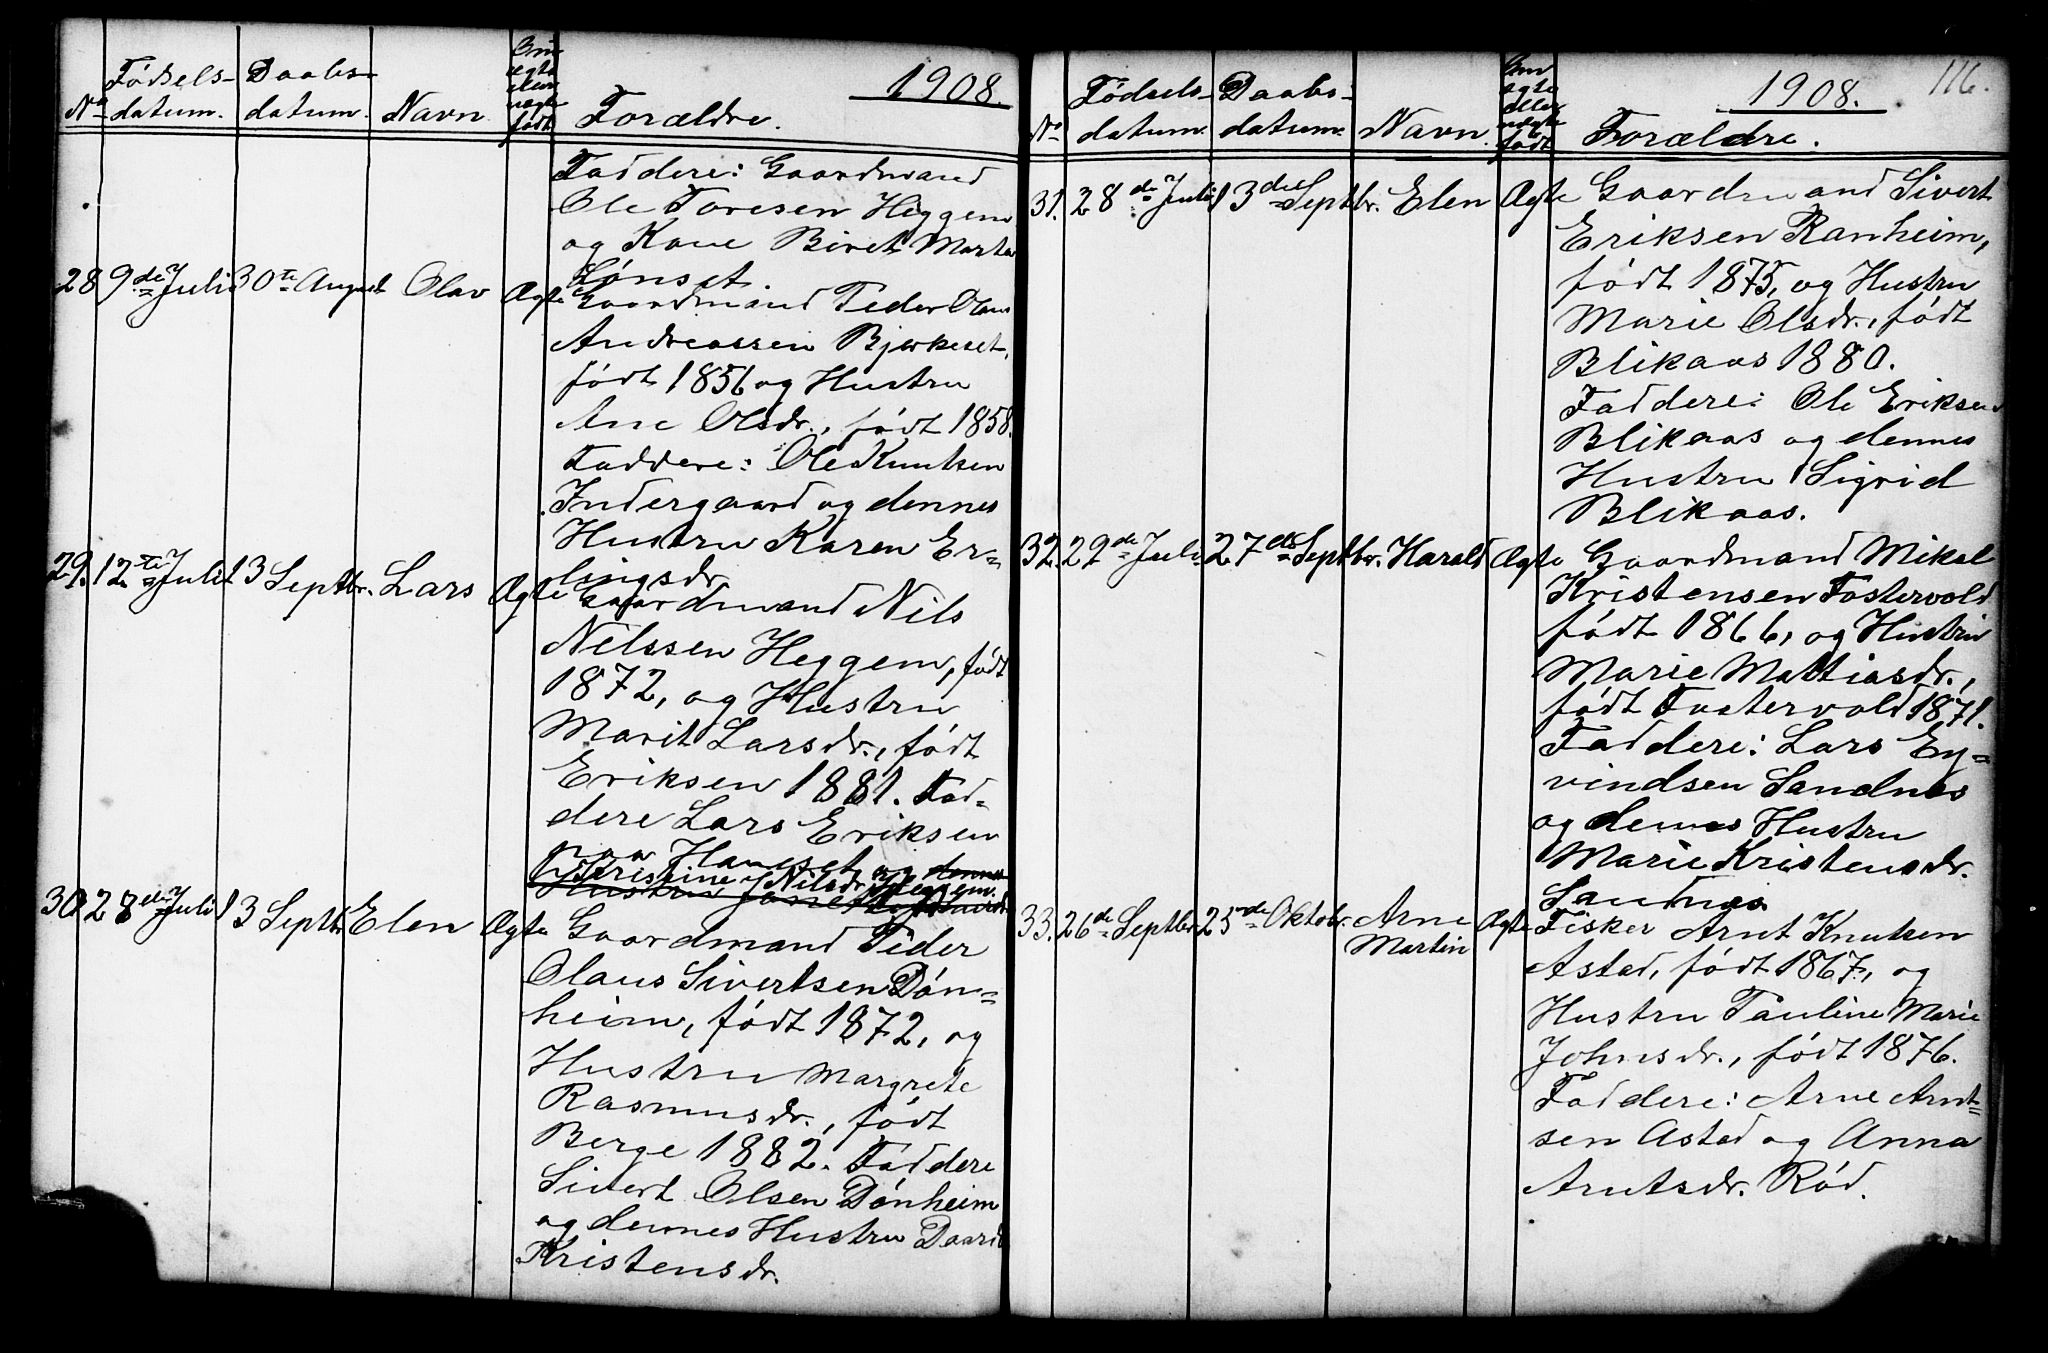 1908.
No
Fødsels-
datum.
Daabs-
datum.
Navn
Om
ægte
eller
uægte
født
Forældre.
Faddere: Gaardmand
Ole Toresen Heggem
og Kone Biret Marta
Lønset
28 9de Juli 30te August Olav Ægte Gaardmand Peder Olaus
Andreassen Bjerkeset,
født 1856 og Hustru
Ane Olsdr., født 1858.
Faddere: Ole Knutsen
Indergaard og dennes
Hustru Karen Er-
lingsdr.
29. 12te Juli 13 Septbr. Lars Ægte Gaardmand Nils
Nilssen Heggem, født
1872, og Hustru
Marit Larsdr., født
Eriksen 1881. Fad-
dere Lars Eriksen
og denne
Kristine Nilsdr. Heggem.
Hustru
30. 28de Juli 13 Septbr. Elen Ægte Gaardmand Peder
Olaus Sivertsen Døn-
heim, født 1872, og
Hustru Margrete
Rasmusdr., født
Berge 1882. Faddere
Sivert Olsen Dønheim
og dennes Hustru Daarid
Kristensdr.
116.
1908.
No
Fødsels-
datum.
Daabs-
datum.
Navn
Om
ægte
eller
uægte
født
Forældre.
31. 28de Juli 13de Septbr. Elen Ægte Gaardmand Sivert
Eriksen Ranheim,
født 1875, og Hustru
Marie Olsdr., født
Blikaas 1880.
Faddere: Ole Eriksen
Blikaas og dennes
Hustru Sigrid
Blikaas.
32. 29de Juli 27de Septbr. Harald Ægte Gaardmand Mikal
Kristensen Fostervold
født 1866, og Hustru
Marie Mattiasdr.,
født Fostervold 1871.
Faddere: Lars Ey-
vindsen Sandnes
og dennes Hustru
Marie Kristensdr.
Sandnes
33. 26de Septbr. 25de Oktobr. Arne Ægte Fisker Arnt Knutsen
Martin
Astad, født 1867, og
Hustru Pauline Marie
Johnsdr., født 1876.
Faddere: Arne Arnt-
sen Astad og Anna
Arntsdr. Rød.